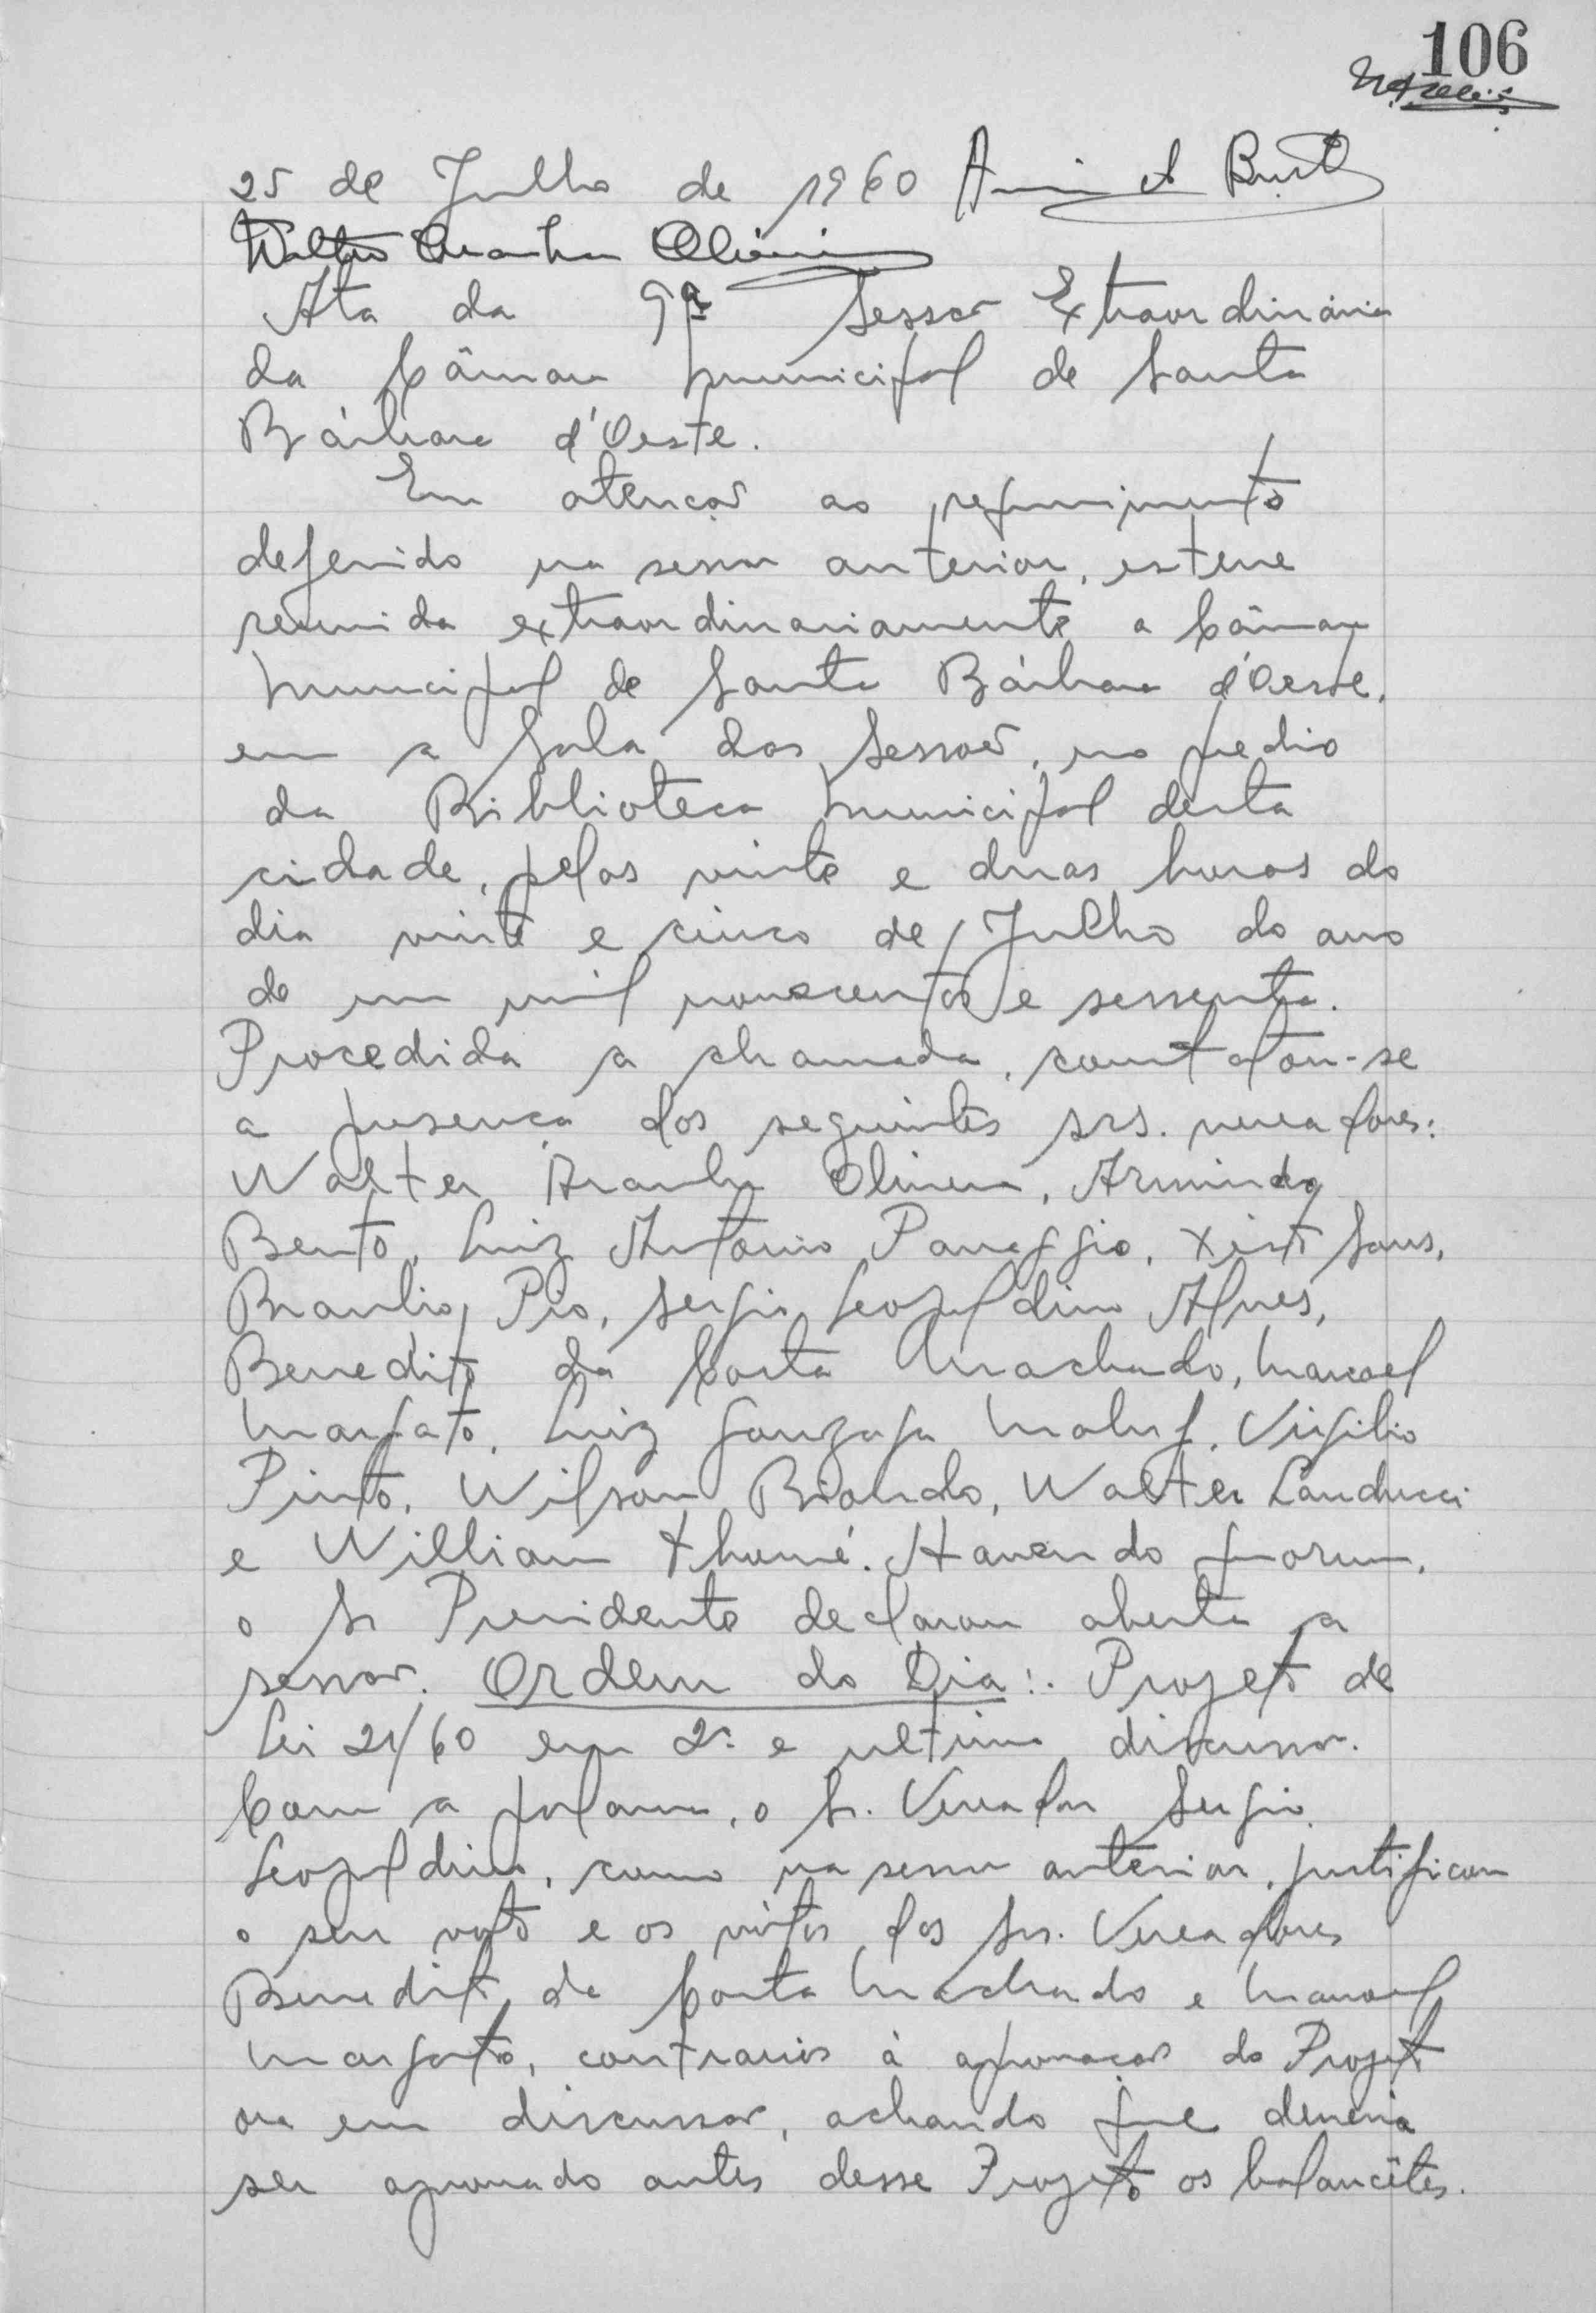 106
25 de Julho de 1960
Walter Aranha Oliveira
Ata da 9ª Sessão Extraordinária
da Câmara Municipal de Santa
Bárbara d'Oeste.
Em atenção ao requerimento
deferido na sessão anterior, esteve
reunida extraordinariamente a Câmara
Municipal de Santa Bárbara d'Oeste,
em a Sala das Sessões, no predio
da Biblioteca Municipal desta
cidade, pelas vinte e duas horas do
dia vinte e cinco de Julho do ano
de um mil novecentos e sessenta.
Procedida a chamada, constatou-se
a presença dos seguintes srs. vereadores:
Walter Aranha Oliveira, Armindo
Bento, Luiz Antonio Panaggio, Xisto Sans,
Braulio Pio, Sergio Leopoldino Alves,
Benedito da Costa Machado, Manoel
Margato, Luiz Gonzaga Maluf, Virgilio
Pinto, Wilson Biondo, Walter Landucci
e William Thomé. Havendo quorum,
o Sr Presidente declarou aberta a
sessão. Ordem do Dia:. Projeto de
Lei 21/60 em 2ª e ultima discussão.
Com a palavra, o Sr. Vereador Sergio
Leopoldino, como na sessão anterior, justificou
o seu voto e os votos dos Srs. Vereadores
Benedito da Costa Machado e Manoel
Margato, contrarios à aprovação do Projeto
ora em discussão, achando que deveria
ser aprovado antes desse Projeto os balancêtes.